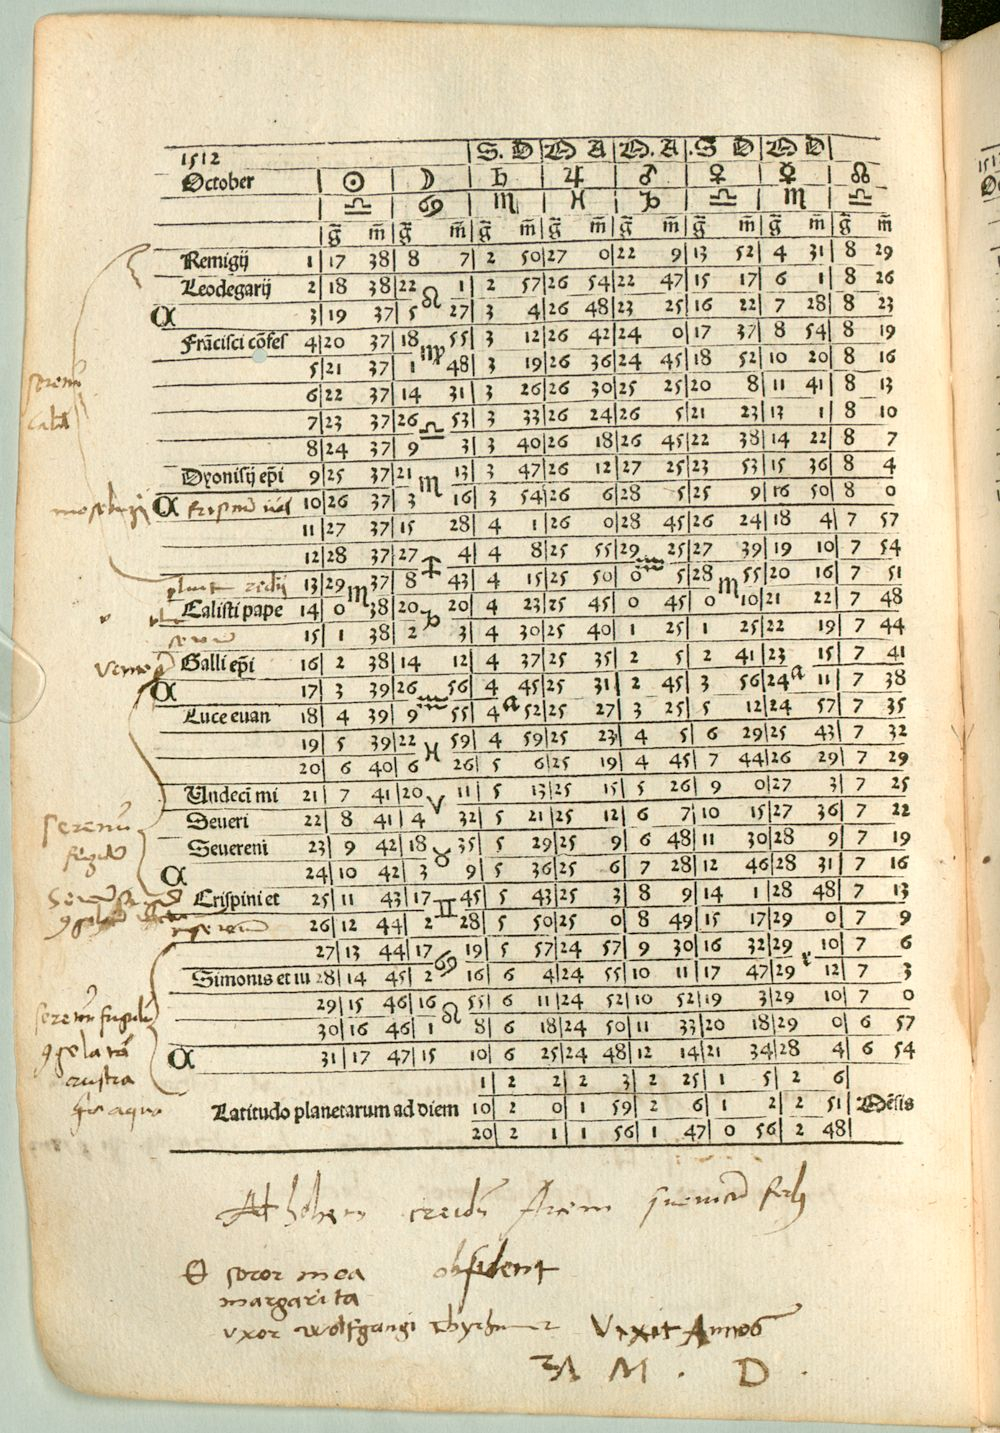 1512 S. D M A M. A .S D M D
October ☉ ☽ ♄ ♃ ♂ ♀ ☿ ☊
♎ ♋ ♏ ♓ ♑ ♎ ♏ ♎
g̃ m̃ g̃ m̃ g̃ m̃ g̃ m̃ g̃ m̃ g̃ m̃ g̃ m̃ g̃ m̃
Remigij 1 17 38 8 7 2 50 27 0 22 9 13 52 4 31 8 29
Leodegarij 2 18 38 22 ♌ 1 2 57 26 54 22 47 15 17 6 1 8 26
a 3 19 37 5 27 3 4 26 48 23 25 16 22 7 28 8 23
Frãcisci cõfes 4 20 37 18 ♍ 55 3 12 26 42 24 0 17 37 8 54 8 19
5 21 37 1 48 3 19 26 36 24 45 18 52 10 20 8 16
6 22 37 14 31 3 26 26 30 25 25 20 8 11 41 8 13
7 23 37 26 ♎ 53 3 33 26 24 26 5 21 23 13 1 8 10
8 24 37 9 3 3 40 26 18 26 45 22 38 14 22 8 7
Dyonisij ep̃i 9 25 37 21 ♏ 13 3 47 26 12 27 25 23 53 15 36 8 4
a 10 26 37 3 16 3 54 26 6 28 5 25 9 16 50 8 0
11 27 37 15 28 4 1 26 0 28 45 26 24 18 4 7 57
12 28 37 27 ♐ 4 4 8 25 55 29 ♒ 25 27 39 19 10 7 54
13 29 ♏ 37 8 43 4 15 25 50 0 5 28 ♏ 55 20 16 7 51
Calisti pape 14 0 38 20 ♑ 20 4 23 25 45 0 45 0 10 21 22 7 48
15 1 38 2 3 4 30 25 40 1 25 1 25 22 19 7 44
Galli ep̃i 16 2 38 14 12 4 37 25 35 2 5 2 41 23 15 7 41
a 17 3 39 26 ♒ 56 4 45 25 31 2 45 3 56 24 a 11 7 38
Luce euan 18 4 39 9 55 4 a 52 25 27 3 25 5 12 24 57 7 35
19 5 39 22 ♓ 59 4 59 25 23 4 5 6 29 25 43 7 32
20 6 40 6 26 5 6 25 19 4 45 7 44 26 29 7 29
Undeci mi 21 7 41 20 ♈ 11 5 13 25 15 5 26 9 0 27 3 7 25
Seueri 22 8 41 4 32 5 21 25 12 6 7 10 15 27 36 7 22
Seuereni 23 9 42 18 ♉ 35 5 29 25 9 6 48 11 30 28 9 7 19
a 24 10 42 3 9 5 36 25 6 7 28 12 46 28 31 7 16
Crispini et 25 11 43 17 ♊ 45 5 43 25 3 8 9 14 1 28 48 7 13
26 12 44 2 28 5 50 25 0 8 49 15 17 29 0 7 9
27 13 44 17 ♋ 19 5 57 24 57 9 30 16 32 29 r 10 7 6
Simonis et iu 28 14 45 2 16 6 4 24 55 10 11 17 47 29 12 7 3
29 15 46 16 ♌ 55 6 11 24 52 10 52 19 3 29 10 7 0
30 16 46 1 8 6 18 24 50 11 33 20 18 29 0 6 57
a 31 17 47 15 10 6 25 24 48 12 14 21 34 28 4 6 54
1 2 2 2 3 2 25 1 5 2 6
Latitudo planetarum ad diem 10 2 0 1 59 2 6 1 2 2 51 Mẽsis
20 2 1 1 56 1 47 0 56 2 48
obsident
soror mea
margarita
vxor wolfgangi Vixit Annos
31 M . D .